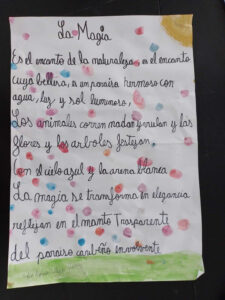 La Magia
Es el encanto de la naturaleza, es el encanto
cuya belleza, es un paraiso hermoso con
agua, luz, y sol luminoso,
Los animales corren nadan y vuelan y las
flores y los arboles festejan,
con el cielo azul y la arena blanca
La magia se transforma en elegancia
reflejan en el manto Trasparente
del paraiso caribeño envolvente